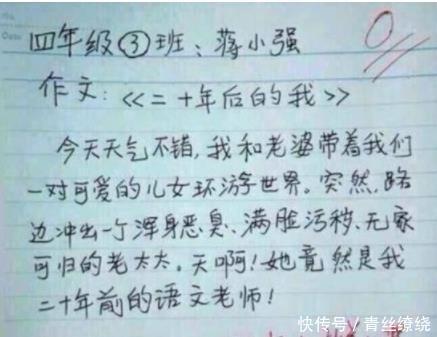 四年级③班：蒋小强
0
作文：<<二十年后的我>>
今天天气不错,我和老婆带着我们
一对可爱的儿女环游世界。突然,路
边冲出一个浑身恶臭、满脸污秽、无家
可归的老太太。天啊!她竟然是我
二十年前的语文老师!
快传号/青丝缭绕